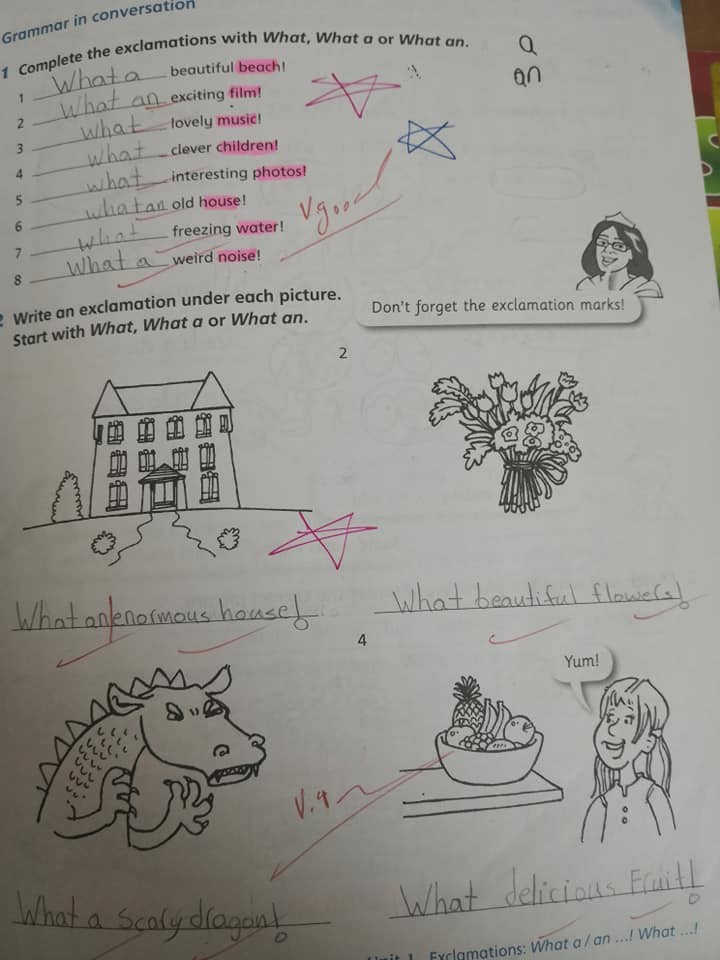 Grammar in conversation
1 Complete the exclamations with What, What a or What an.
a
an
1 What a beautiful beach!
2 What an exciting film!
3 What lovely music!
4 What clever children!
5 What interesting photos!
6 what an old house!
7 What freezing water!
8 What a weird noise!
V good
2 Write an exclamation under each picture.
Start with What, What a or What an.
Don't forget the exclamation marks!
2
What an enormous house!
What beautiful flowers!
4
Yum!
V.g
What a scary dragon!
What delicious Fruit!
Unit 1 Exclamations: What a / an ...! What ...!